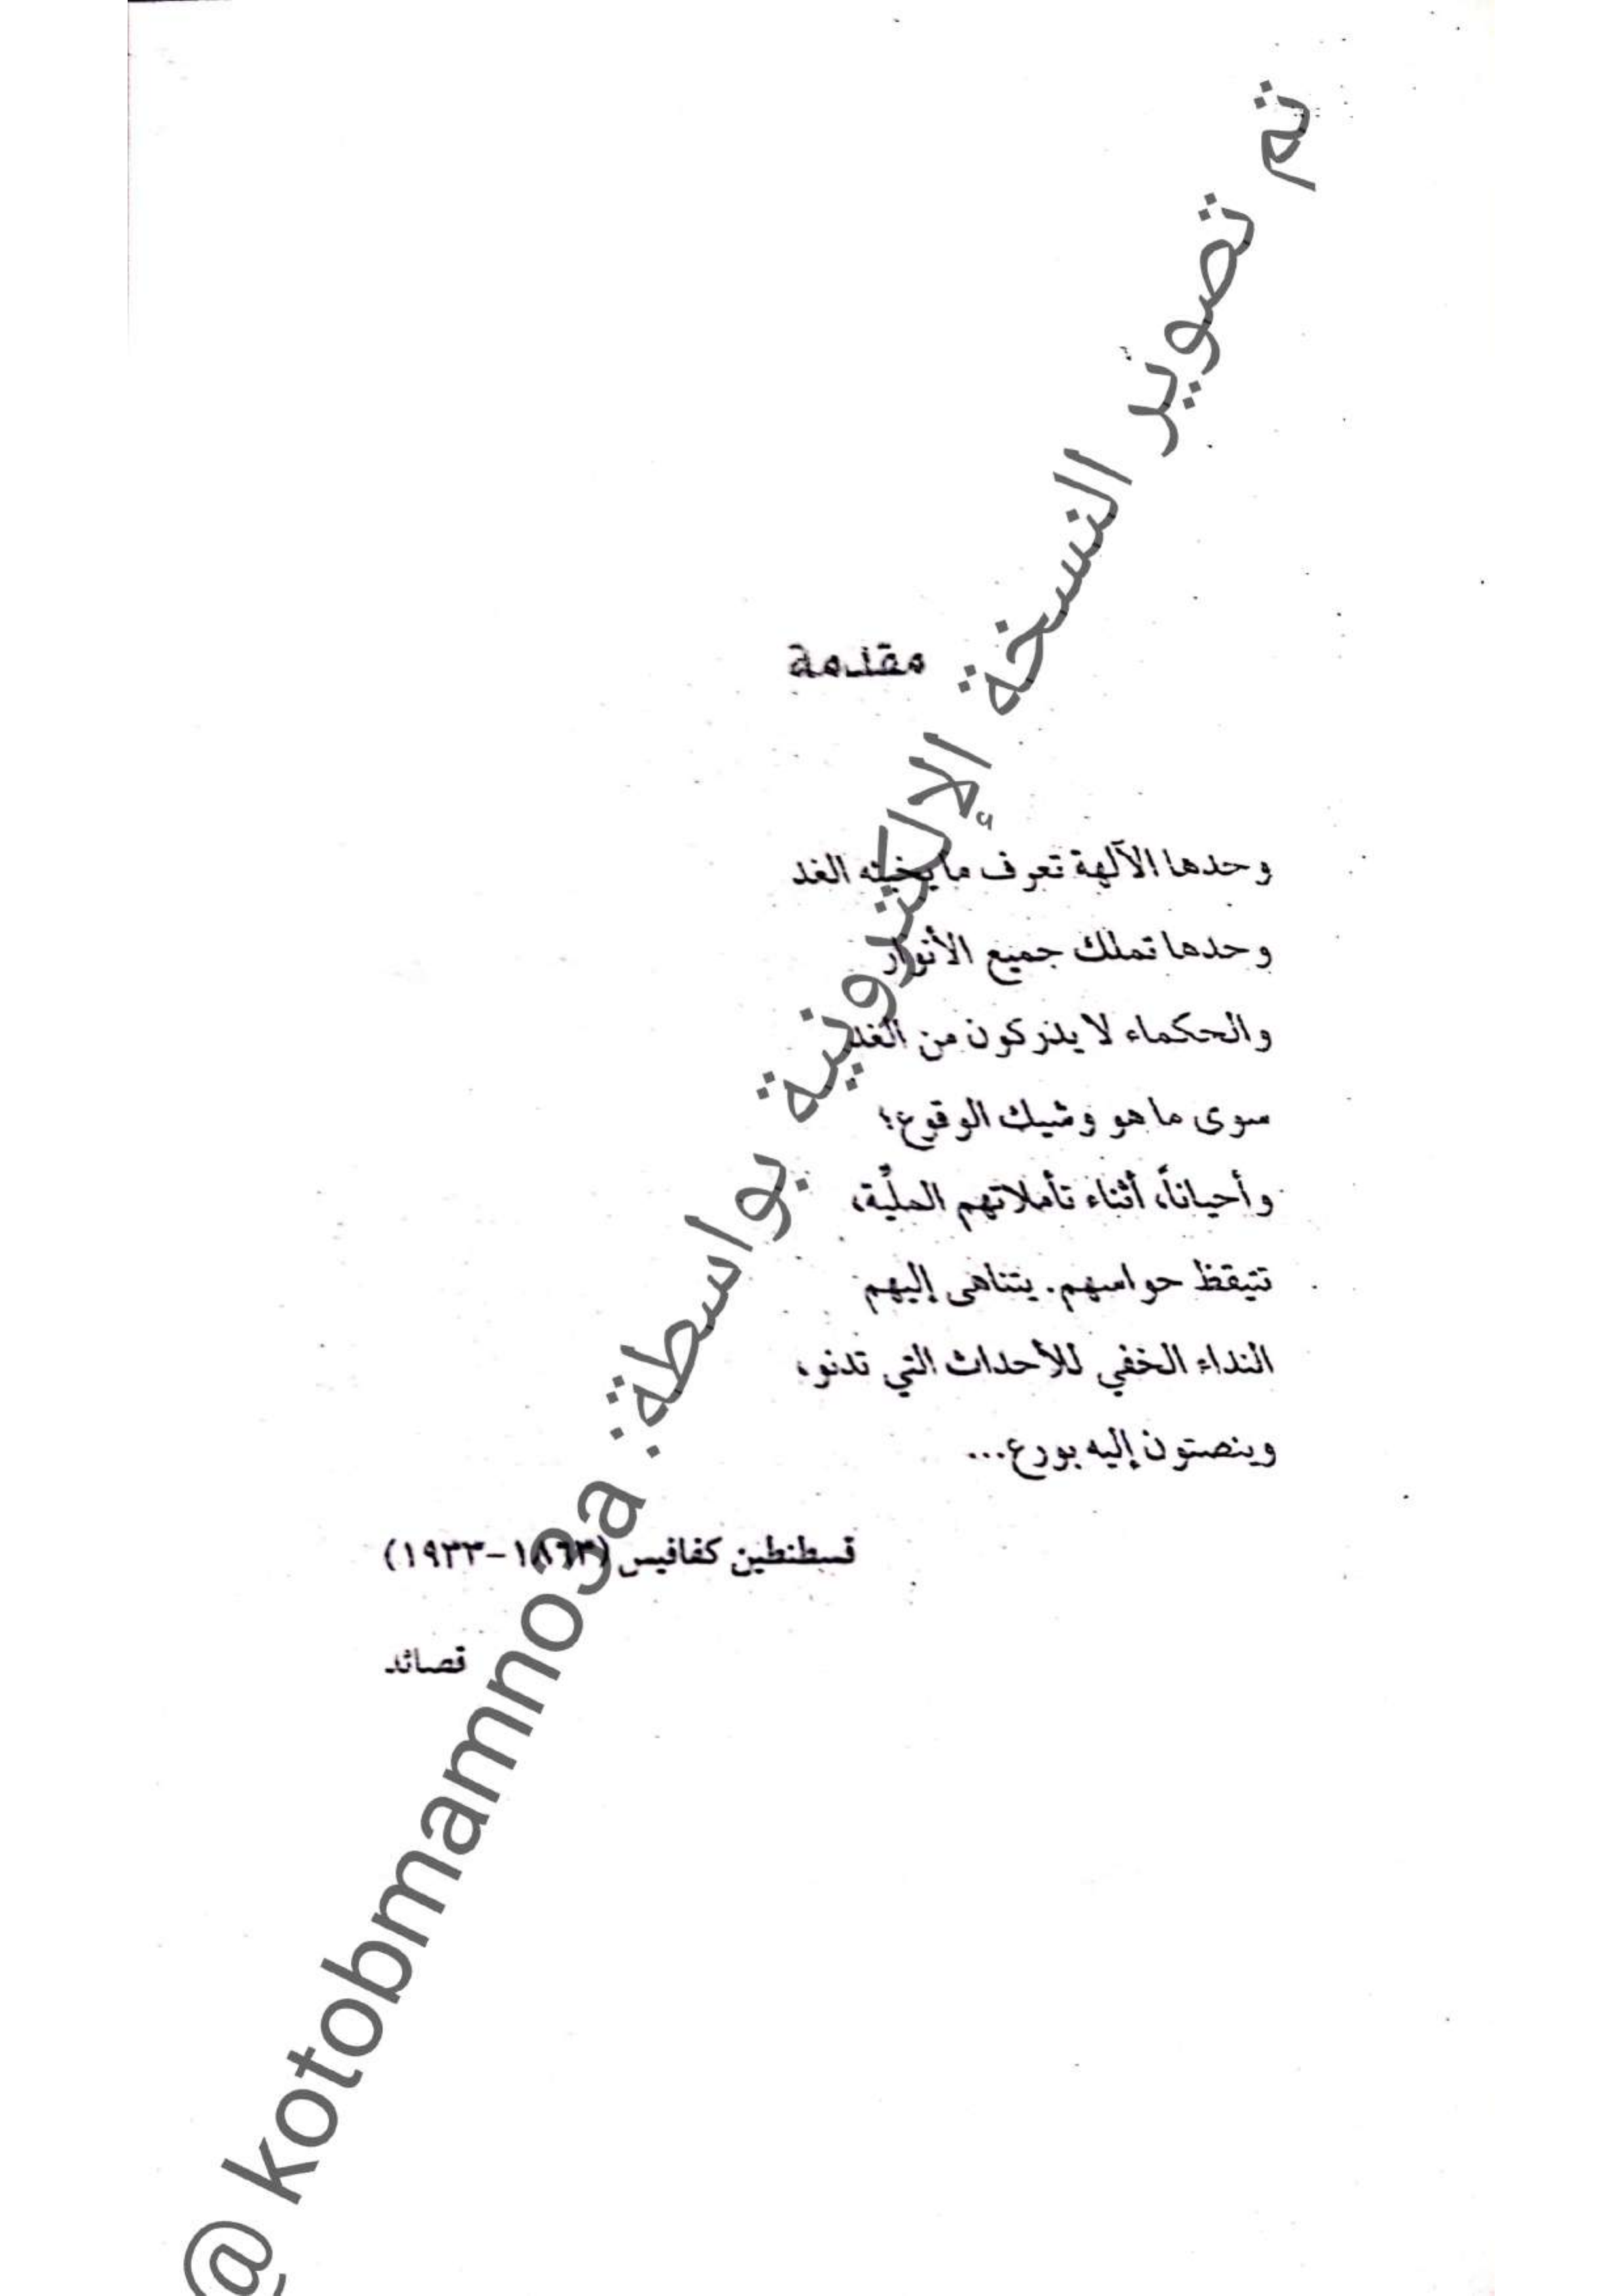 مقدمة
وحدها الآلهة تعرف ما يخبئه الغد
وحدها تملك جميع الأنوار
والحكماء لا يدركون من الغد
سوى ما هو وشيك الوقوع؛
وأحياناً، أثناء تأملاتهم المليّة،
تتيقظ حواسهم. يتناهى إليهم
النداء الخفي للأحداث التي تدنو،
وينصتون إليه بورع...
قسطنطين كفافيس (١٨٦٣-١٩٣٣)
قصائد
تم تصوير النسخة الإلكترونية بواسطة: @kotobmamnoo3a